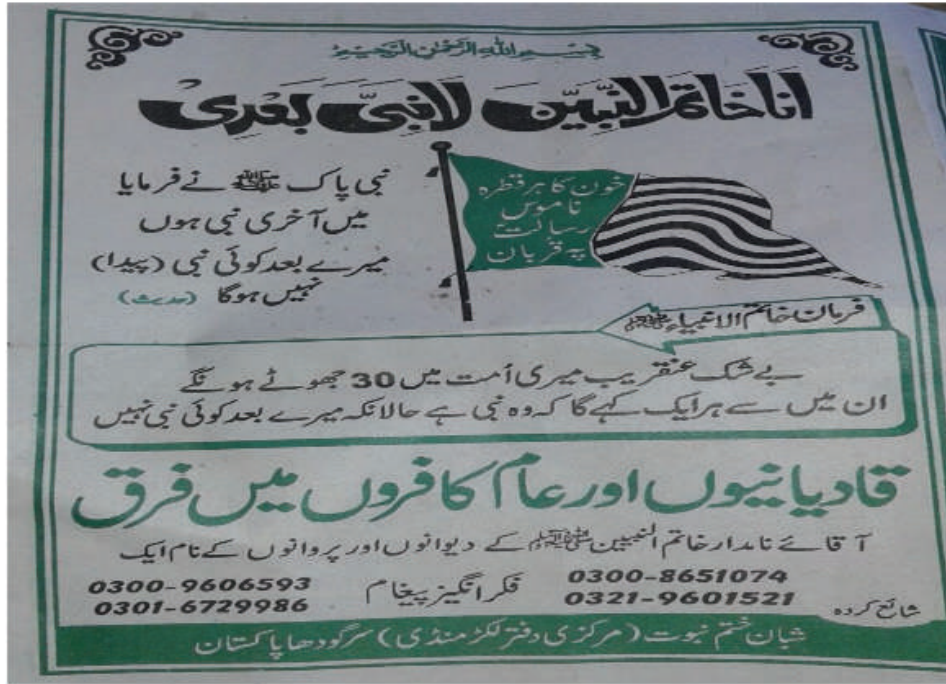 بِسْمِ اللهِ الرَّحْمٰنِ الرَّحِيْمِ
اناخاتم النبیّن لانبیَّ بعدی
نبی پاک ﷺ نے فرمایا
میں آخری نبی ہوں
میرے بعد کوئی نبی (پیدا)
نہیں ہوگا (حدیث)
خون کا ہر قطرہ
ناموس
رسالت
پہ قربان
فرمان خاتم الانبیاء ﷺ
بے شک عنقریب میری اُمت میں 30 جھوٹے ہونگے
ان میں سے ہر ایک کہے گا کہ وہ نبی ہے حالانکہ میرے بعد کوئی نبی نہیں
قادیانیوں اور عام کافروں میں فرق
آقائے نامدار خاتم النبیین ﷺ کے دیوانوں اور پروانوں کے نام ایک
فکر انگیز پیغام
0300-8651074
0321-9601521
0300-9606593
0301-6729986
شائع کردہ
شبان ختم نبوت (مرکزی دفتر لکڑ منڈی) سرگودھا پاکستان